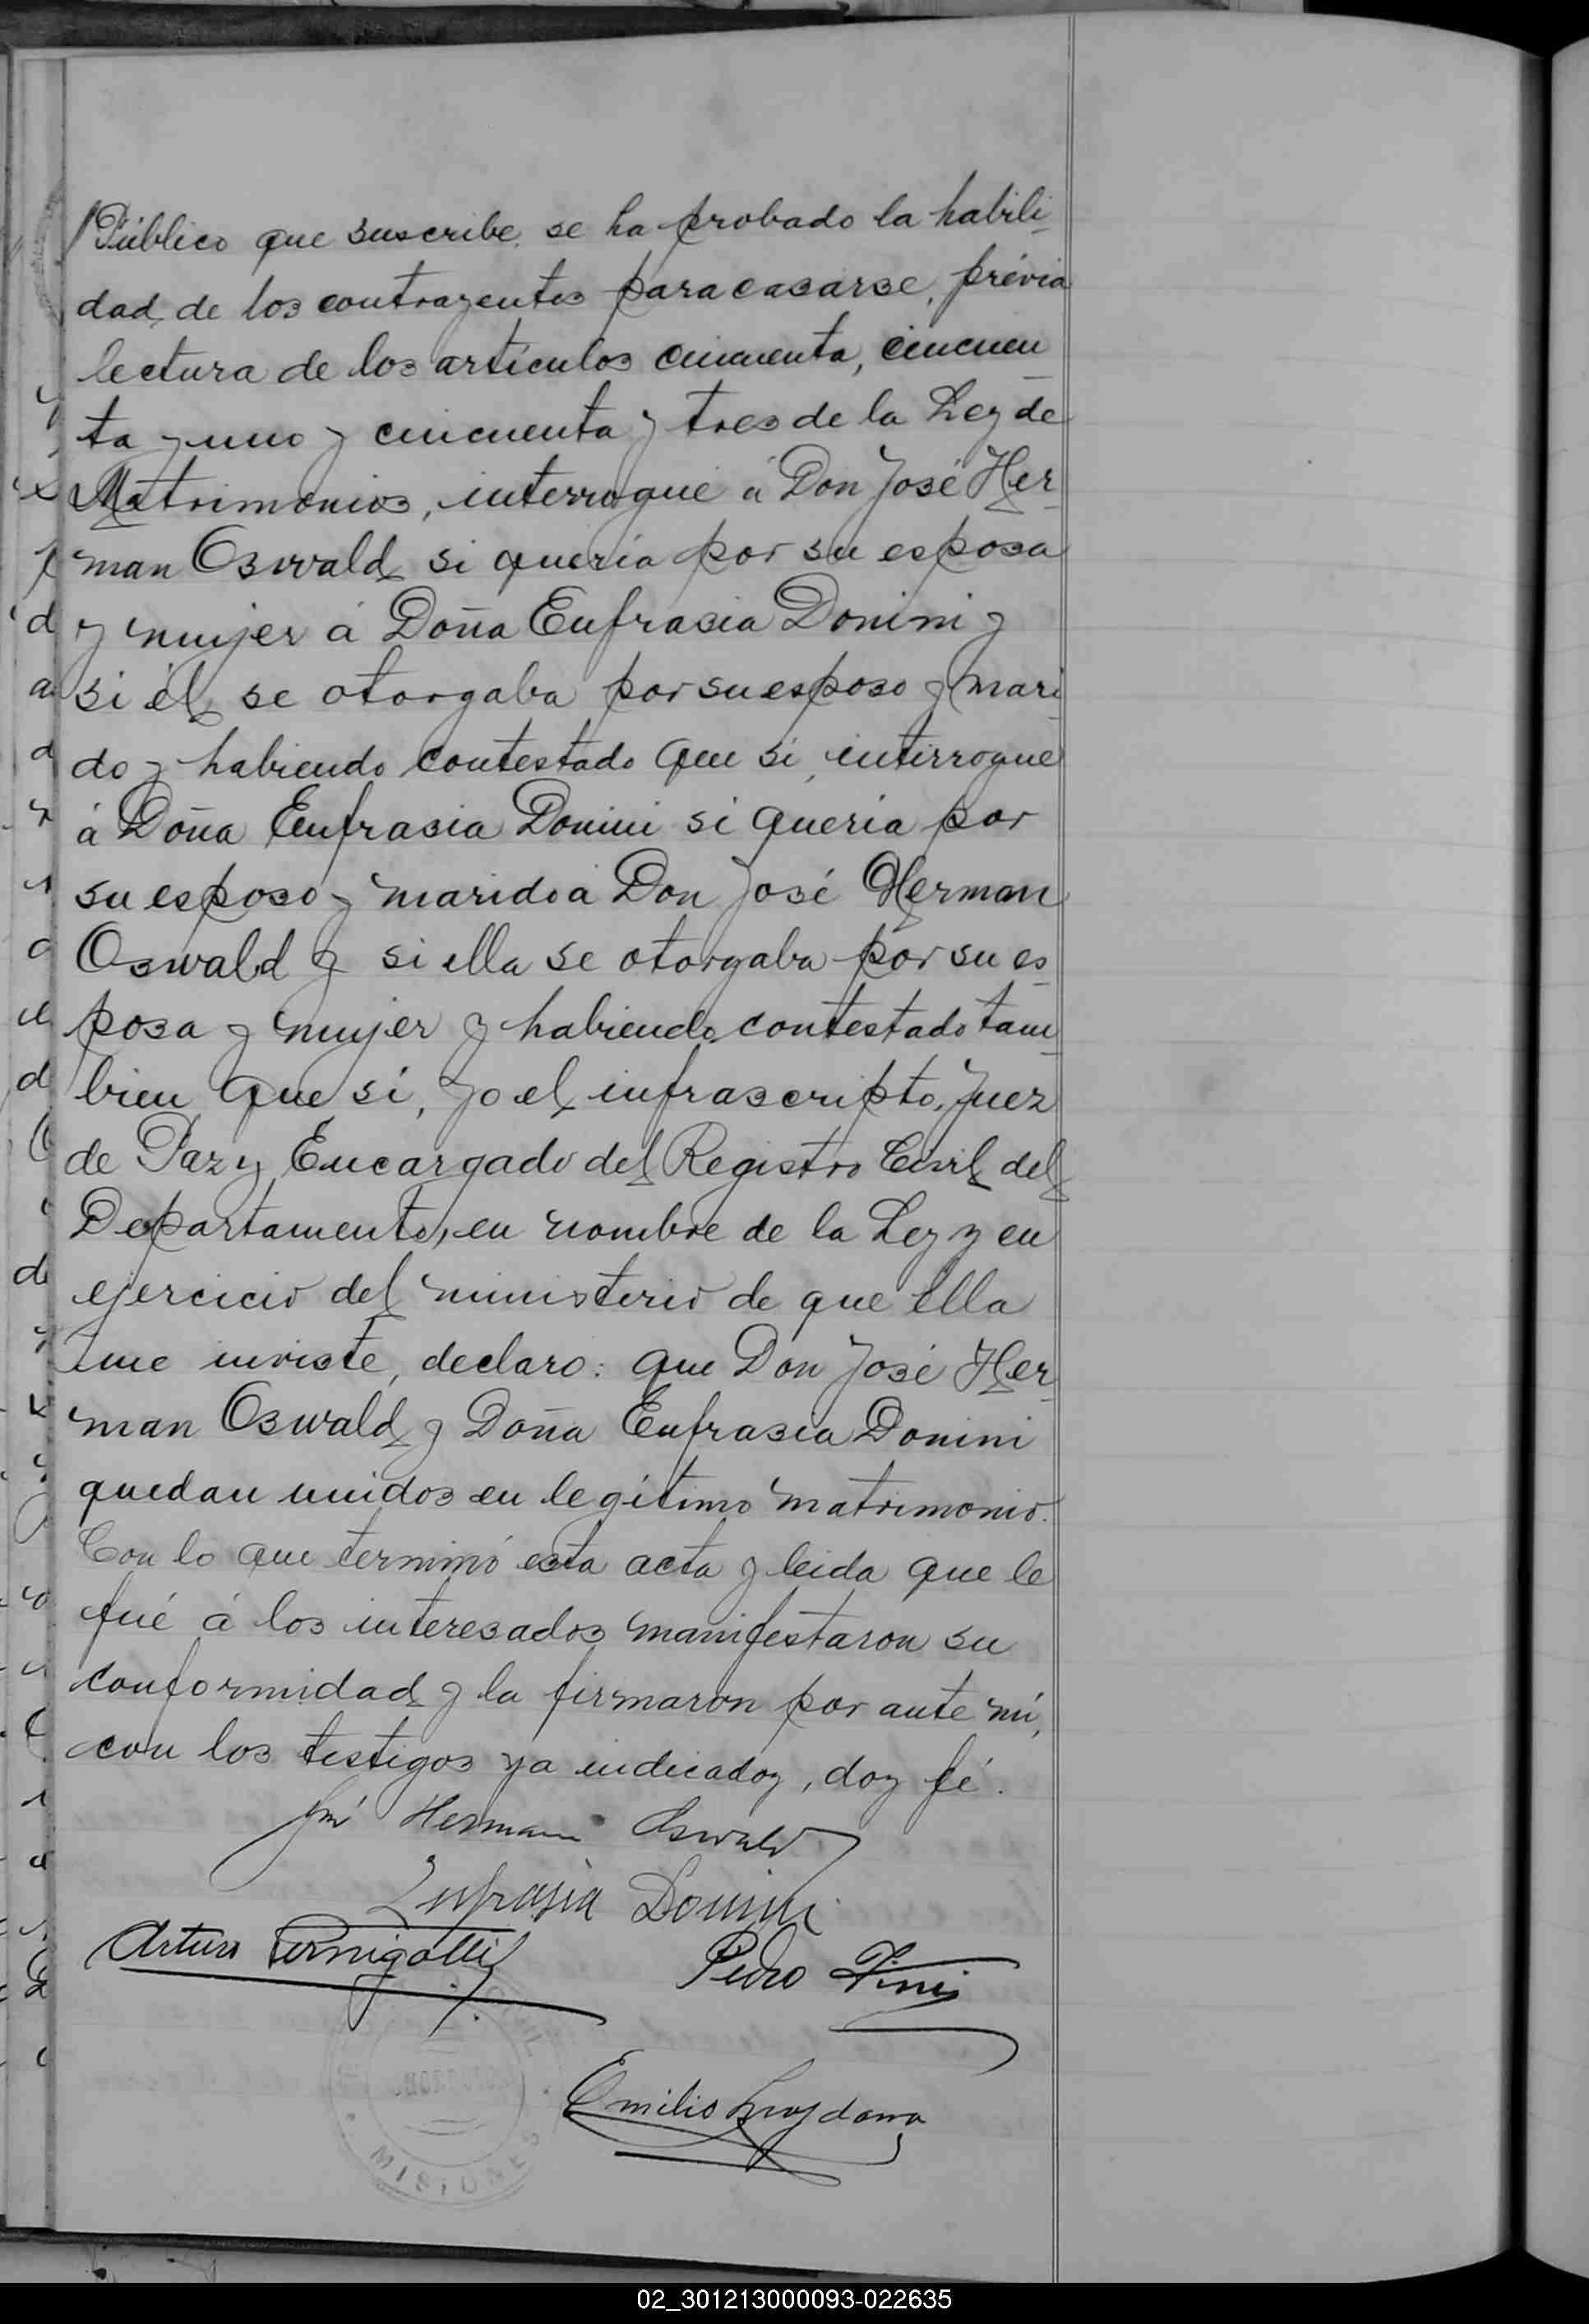 Público que suscribe. se ha probado la habili-
dad, de los contrayentes para casarse, prévia
lectura de los artículos cincuenta, cincuen-
ta y uno y cincuenta y tres de la Ley de
Matrimonios, interrogué á Don José Her-
man Oswald si quería por su esposa
y mujer á Doña Eufrasia Donini y
si él se otorgaba por su esposo y mari-
do y habiendo contestado que si, interrogue
á Doña Eufrasia Donini si queria por
su esposo y marido á Don José Herman
Oswald y si ella se otorgaba por su es-
posa y mujer y habiendo contestado tam-
bien que si, yo el infrascripto, Juez
de Paz y Encargado del Registro Civil del
Departamento, en nombre de la Ley y en
ejercicio del ministerio de que ella
me inviste, declaro: que Don José Her-
man Oswald y Doña Eufrasia Donini
quedan unidos en legítimo matrimonio.
Con lo que terminó esta acta y leida que le
fué á los interesados manifestaron su
conformidad y la firmaron por ante mí,
con los testigos ya indicados, doy fé.
José Hermann Oswald
Eufrasia Donini
Arturo Pernigotti Pedro Fini
Emilio
MISIONES
02_301213000093-022635